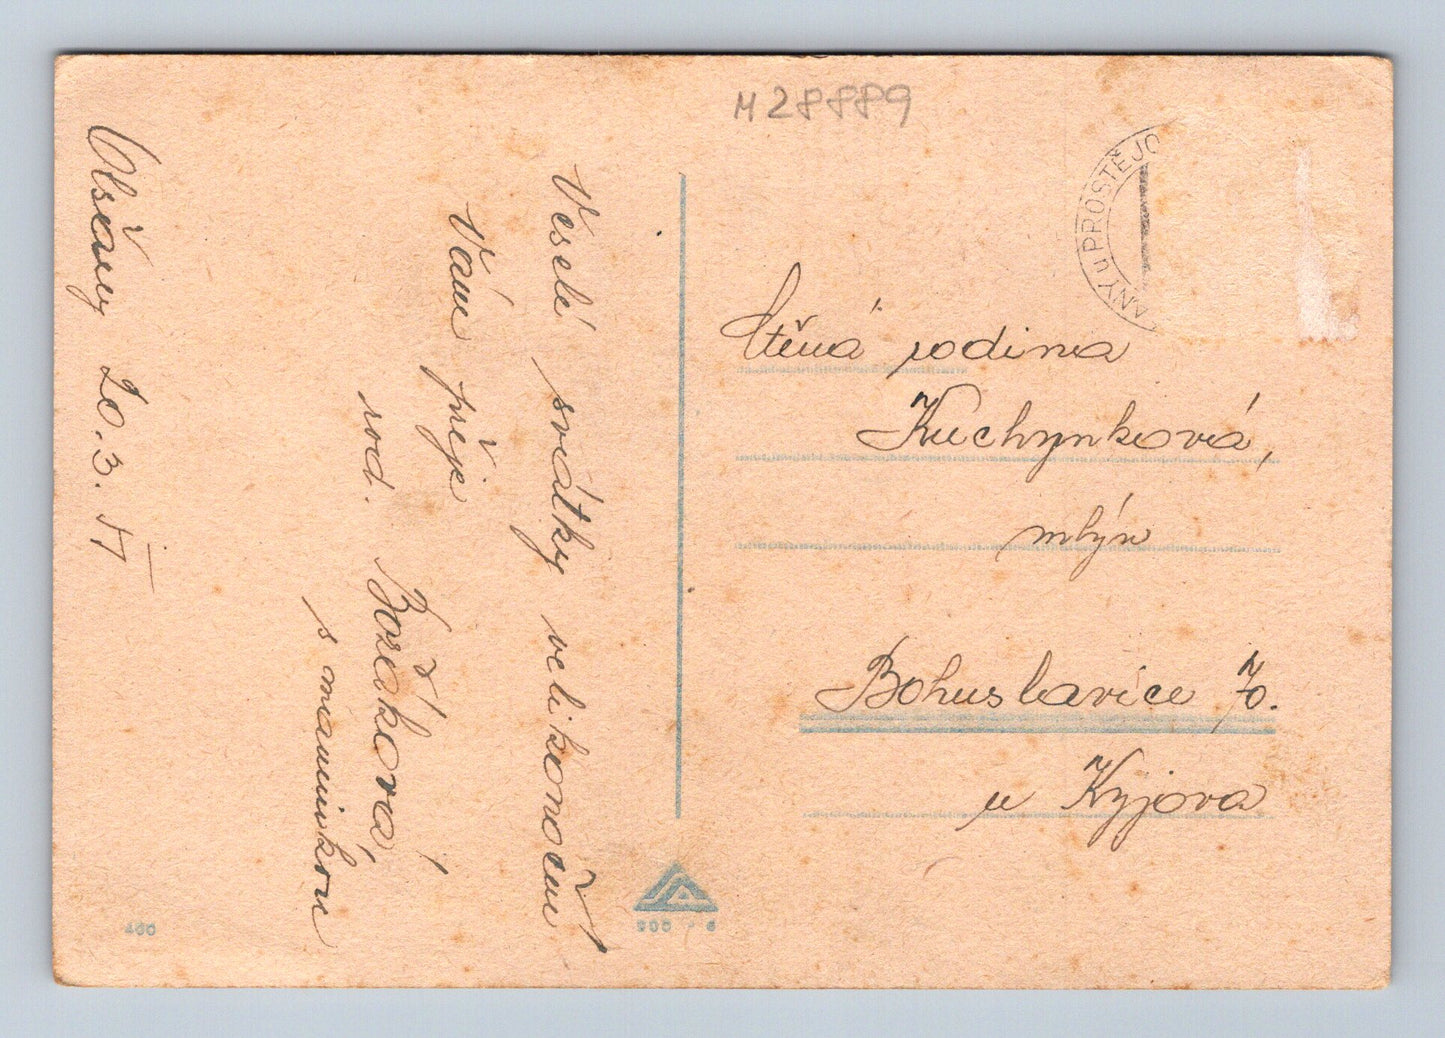 Olšany 20.3.51
Veselé svátky velikonoční
Vám přeje
rod. Božáková,
s maminkou
M28889
ANY u PROSTĚJO
Ctěná rodina
Kuchynková,
mlýn
Bohuslavice 70.
u Kyjova
900 - 6
400